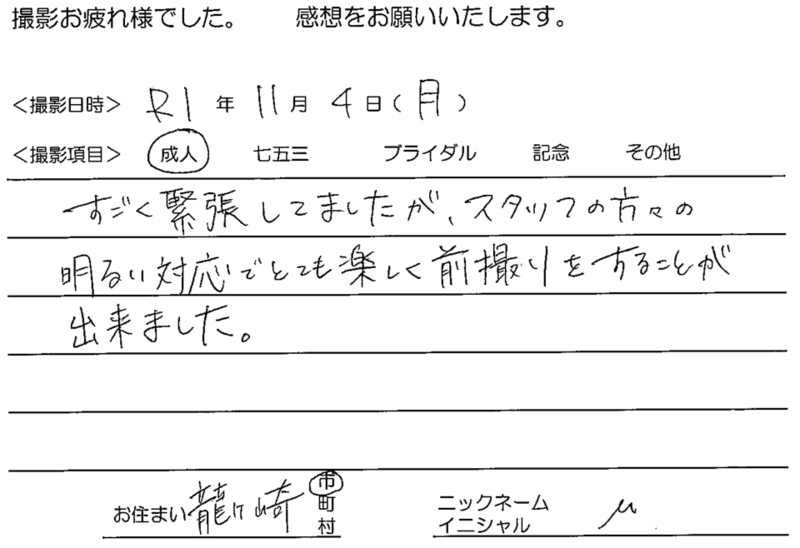 撮影お疲れ様でした。　感想をお願いいたします。
＜撮影日時＞ R1 年 11 月 4 日（月）
＜撮影項目＞ 成人 七五三 ブライダル 記念 その他
すごく緊張してましたが、スタッフの方々の
明るい対応でとても楽しく前撮りをすることが
出来ました。
お住まい 龍ヶ崎 市 町 村
ニックネーム イニシャル μ